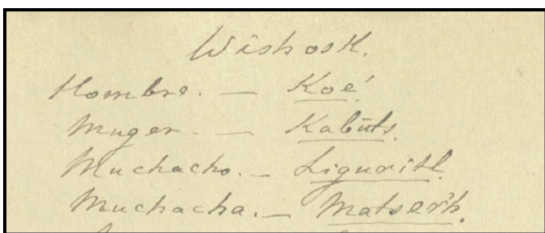 Wishosk.
Hombre. — Koé!
Muger. — Kabūts.
Muchacho. — Liguoritl.
Muchacha. — Matserh.